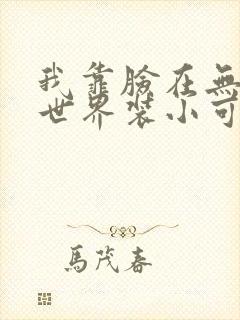 我靠臉在無
世界裝小可
馬茂春